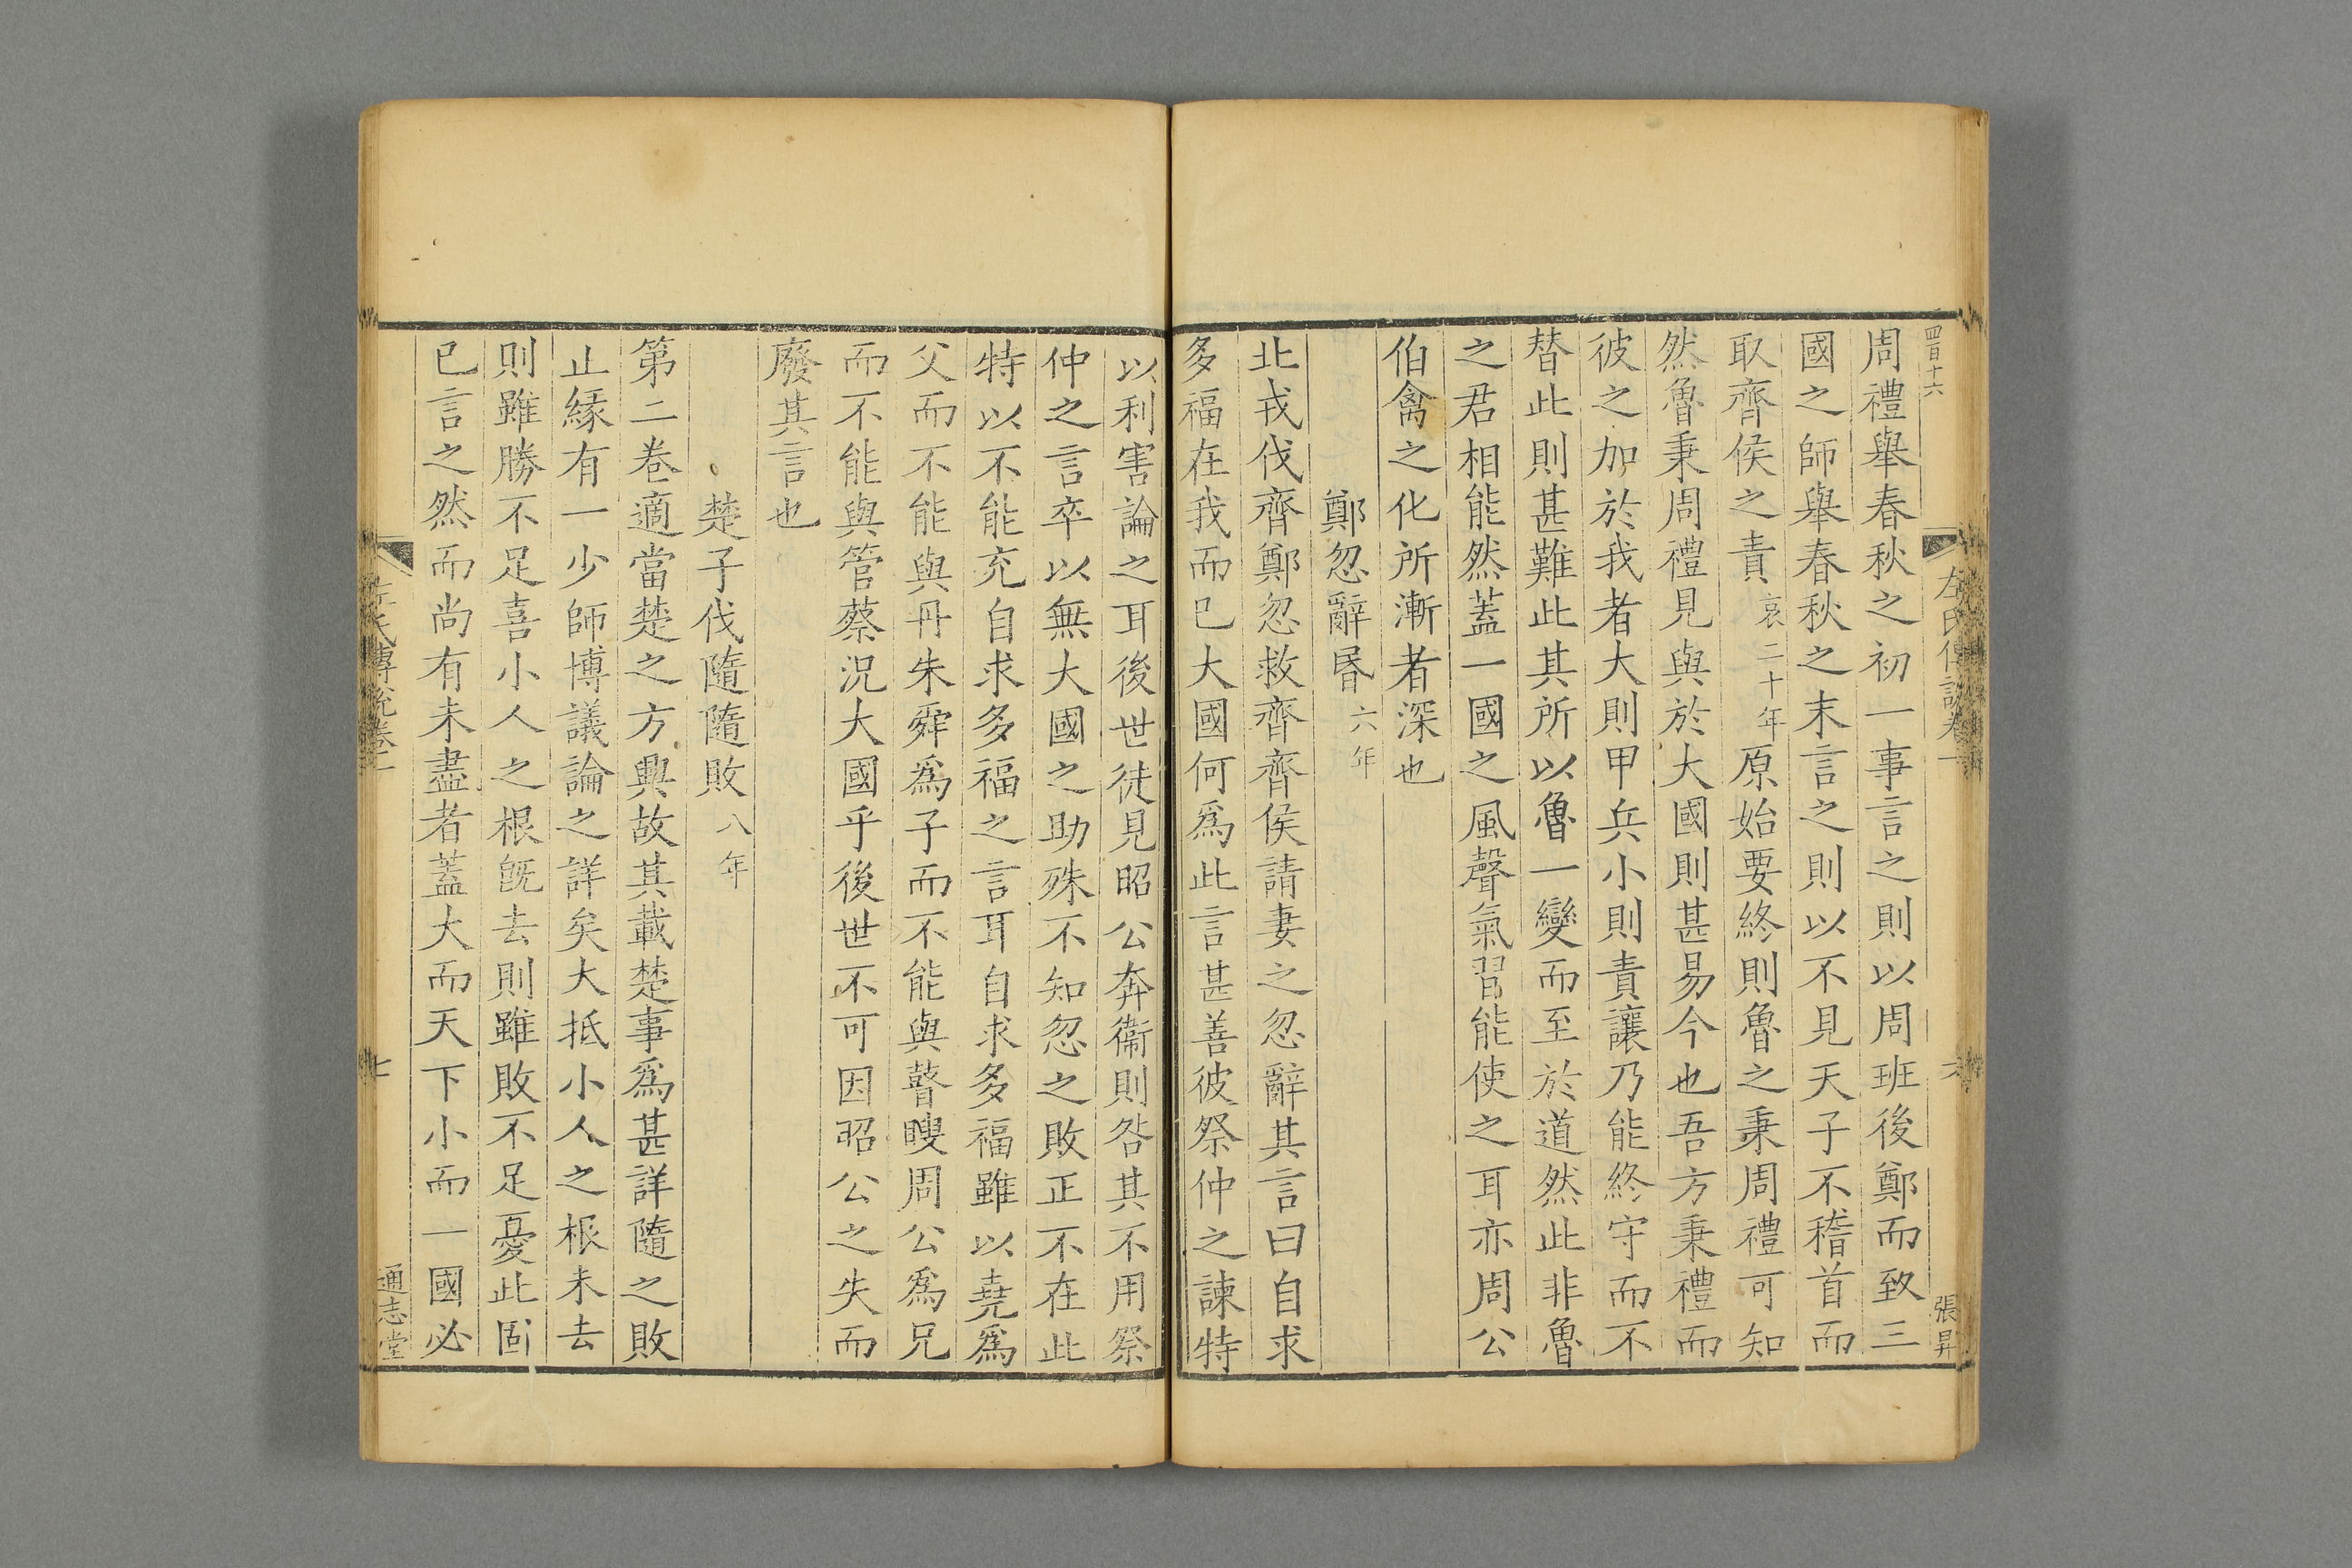 四百十六
左氏傳說卷一
六
張昇
周禮舉春秋之初一事言之則以周班後鄭而致三
國之師舉春秋之末言之則以不見天子不稽首而
取齊侯之責哀二十年原始要終則魯之秉周禮可知
然魯秉周禮見與於大國則甚易今也吾方秉禮而
彼之加於我者大則甲兵小則責讓乃能終守而不
替此則甚難此其所以魯一變而至於道然此非魯
之君相能然蓋一國之風聲氣習能使之耳亦周公
伯禽之化所漸者深也
鄭忽辭昬六年
北戎伐齊鄭忽救齊齊侯請妻之忽辭其言曰自求
多福在我而已大國何爲此言甚善彼祭仲之諫特
以利害論之耳後世徒見昭公奔衞則咎其不用祭
仲之言卒以無大國之助殊不知忽之敗正不在此
特以不能充自求多福之言耳自求多福雖以堯爲
父而不能與丹朱舜爲子而不能與瞽瞍周公爲兄
而不能與管蔡況大國乎後世不可因昭公之失而
廢其言也
楚子伐隨隨敗八年
第二卷適當楚之方興故其載楚事爲甚詳隨之敗
止緣有一少師博議論之詳矣大抵小人之根未去
則雖勝不足喜小人之根旣去則雖敗不足憂此固
已言之然而尚有未盡者蓋大而天下小而一國必
左氏傳說卷一
七
通志堂